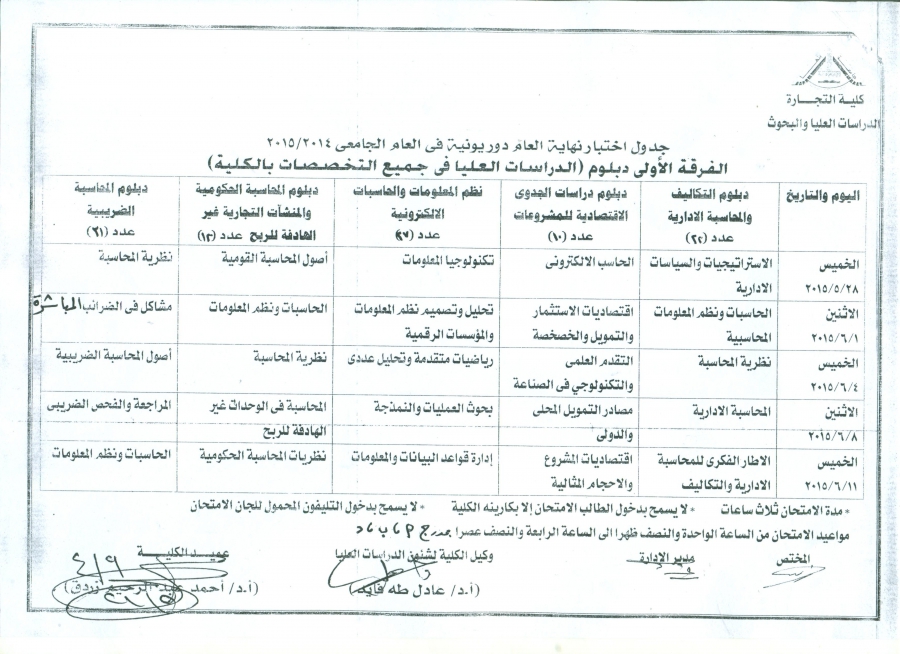 كلية التجارة
الدراسات العليا والبحوث
جدول اختبار نهاية العام دور يونية فى العام الجامعى ٢٠١٥/٢٠١٤
الفرقة الأولى دبلوم (الدراسات العليا فى جميع التخصصات بالكلية)
اليوم والتاريخ | دبلوم التكاليف والمحاسبة الادارية عدد (٢٢) | دبلوم دراسات الجدوى الاقتصادية للمشروعات عدد (١٠) | نظم المعلومات والحاسبات الالكترونية عدد (٢٧) | دبلوم المحاسبة الحكومية والمنشآت التجارية غير الهادفة للربح عدد (١٢) | دبلوم المحاسبة الضريبية عدد (٦١)
الخميس ٢٠١٥/٥/٢٨ | الاستراتيجيات والسياسات الادارية | الحاسب الالكترونى | تكنولوجيا المعلومات | أصول المحاسبة القومية | نظرية المحاسبة
الاثنين ٢٠١٥/٦/١ | الحاسبات ونظم المعلومات المحاسبية | اقتصاديات الاستثمار والتمويل والخصخصة | تحليل وتصميم نظم المعلومات والمؤسسات الرقمية | الحاسبات ونظم المعلومات | مشاكل فى الضرائب المباشرة
الخميس ٢٠١٥/٦/٤ | نظرية المحاسبة | التقدم العلمى والتكنولوجي فى الصناعة | رياضيات متقدمة وتحليل عددى | نظرية المحاسبة | أصول المحاسبة الضريبية
الاثنين ٢٠١٥/٦/٨ | المحاسبة الادارية | مصادر التمويل المحلى والدولى | بحوث العمليات والنمذجة | المحاسبة فى الوحدات غير الهادفة للربح | المراجعة والفحص الضريبى
الخميس ٢٠١٥/٦/١١ | الاطار الفكرى للمحاسبة الادارية والتكاليف | اقتصاديات المشروع والاحجام المثالية | إدارة قواعد البيانات والمعلومات | نظريات المحاسبة الحكومية | الحاسبات ونظم المعلومات
*مدة الامتحان ثلاث ساعات *لا يسمح بدخول الطالب الامتحان إلا بكارنيه الكلية *لا يسمح بدخول التليفون المحمول للجان الامتحان
مواعيد الامتحان من الساعة الواحدة والنصف ظهرا الى الساعة الرابعة والنصف عصرا
المختص مدير الإدارة وكيل الكلية لشئون الدراسات العليا عميد الكلية
(أ.د/ عادل طه فايد) (أ.د/ أحمد عبد الرحيم زردق)